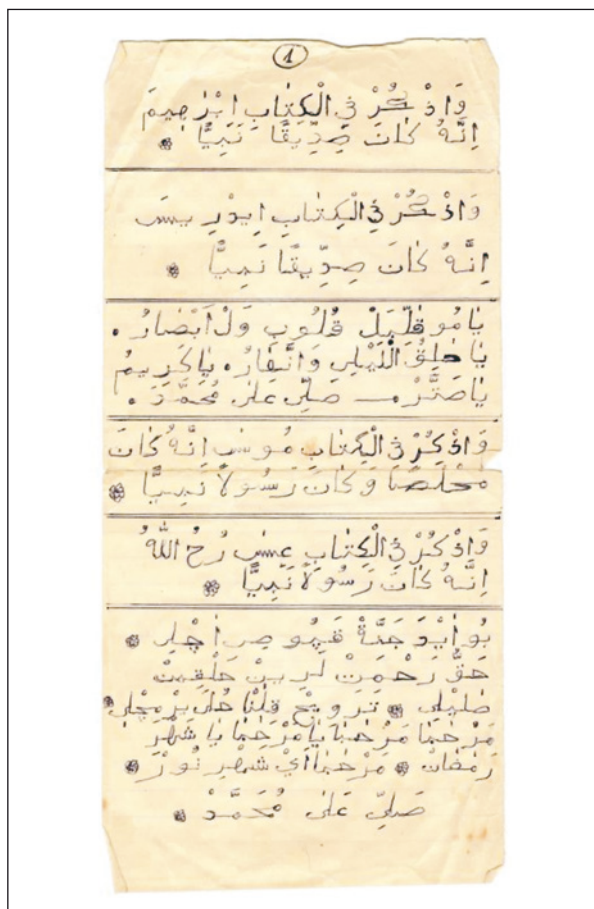 ١
وَاذْكُرْ فِي الْكِتَابِ اِبْرٰهِيمَ
اِنَّهُ كَانَ صِدِّيقًا نَبِيًّا
وَاذْكُرْ فِي الْكِتَابِ اِيدْرِيسَ
اِنَّهُ كَانَ صِدِّيقًا نَبِيًّا
يَا مُوقَلِّبَلْ قُلُوبِ وَلْ اَبْصَارُ .
يَا خٰلِقُ الَّيْلِ وَانَّهَارُ . يَا كَرِيمُ
يَا صَتَّرْ صَلِّ عَلٰى مُحَمَّدَ .
وَاذْكُرْ فِي الْكِتَابِ مُوسٰى اِنَّهُ كَانَ
مُخْلَصًا وَكَانَ رَسُولًا نَبِيًّا
وَاذْكُرْ فِي الْكِتَابِ عِيسٰى رُحُ اللّٰهُ
اِنَّهُ كَانَ رَسُولًا نَبِيًّا
بُو جَنَّةْ
حَقُّ رَحْمَتِنْ
قِلْنَا
مَرْحَبَا مَرْحَبَا يَا مَرْحَبَا يَا شَهْرِ
رَمَضَانْ مَرْحَبَا اَيْ شَهْرِ نُورْ
صَلِّ عَلٰى مُحَمَّدْ